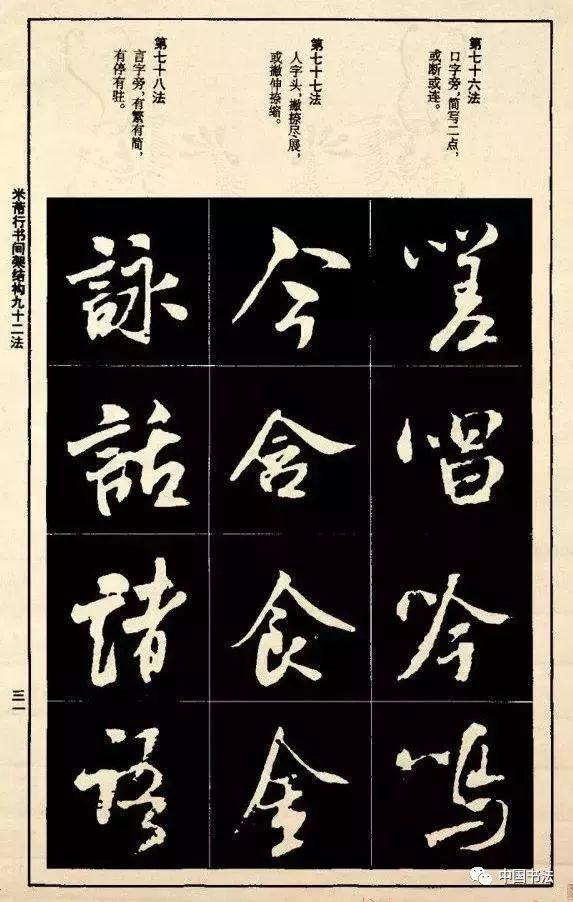 第七十六法
口字旁，简写二点，
或断或连。
第七十七法
人字头，撇捺尽展，
或撇伸捺缩。
第七十八法
言字旁，有繁有简，
有停有驻。
嗟
唱
吟
鸣
今
含
食
金
詠
話
諸
語
米芾行书间架结构九十二法
三一
中国书法